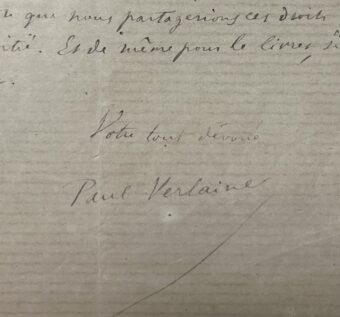 que nous partagerions ces droits
. Et de même pour le livre,
Votre tout dévoué
Paul Verlaine